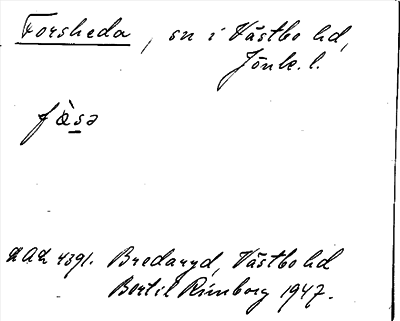 Forsheda, sn i Västbo hd,
Jönk. l.
fæ̀s̲ə
ULMA 4391. Bredaryd, Västbo hd
Bertil Rimborg 1947.